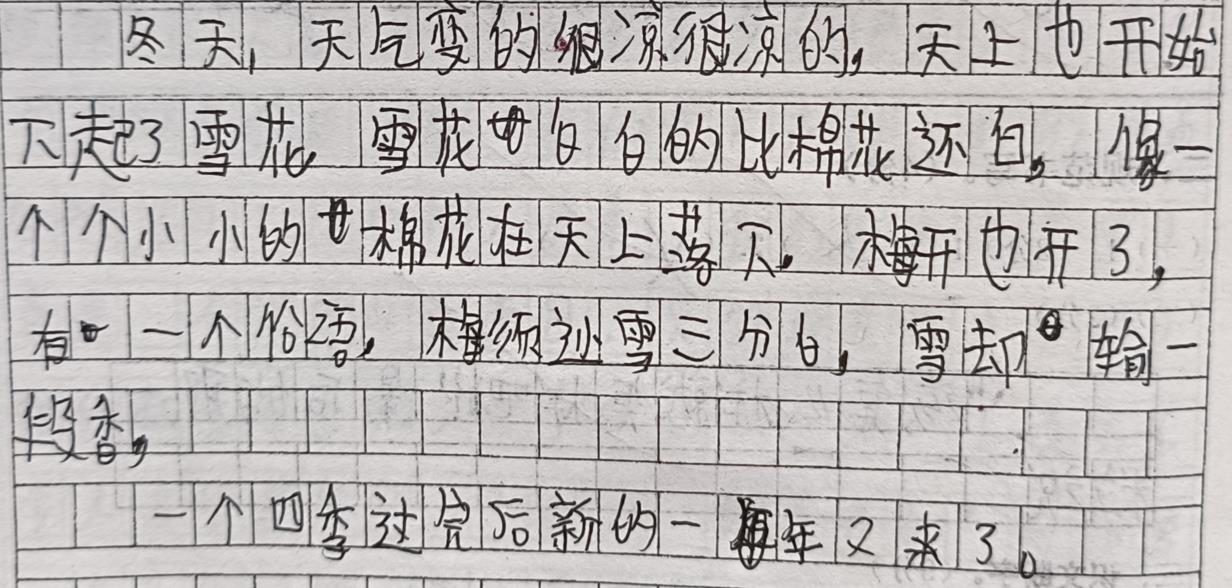 冬天,天气变的很凉很凉的,天上也开始
下起了雪花,雪花白白的比棉花还白,像一
个个小小的棉花在天上落下,梅开也开了,
有一个俗语,梅须逊雪三分白,雪却输一
段香,
一个四季过完后新的一年又来了。